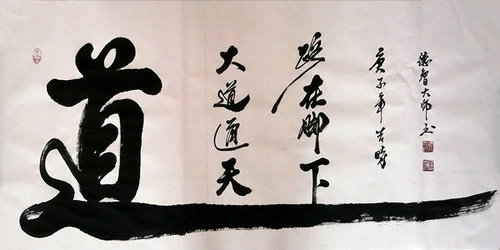 道
大道通天
路在脚下
庚子年吉時
德智大师书